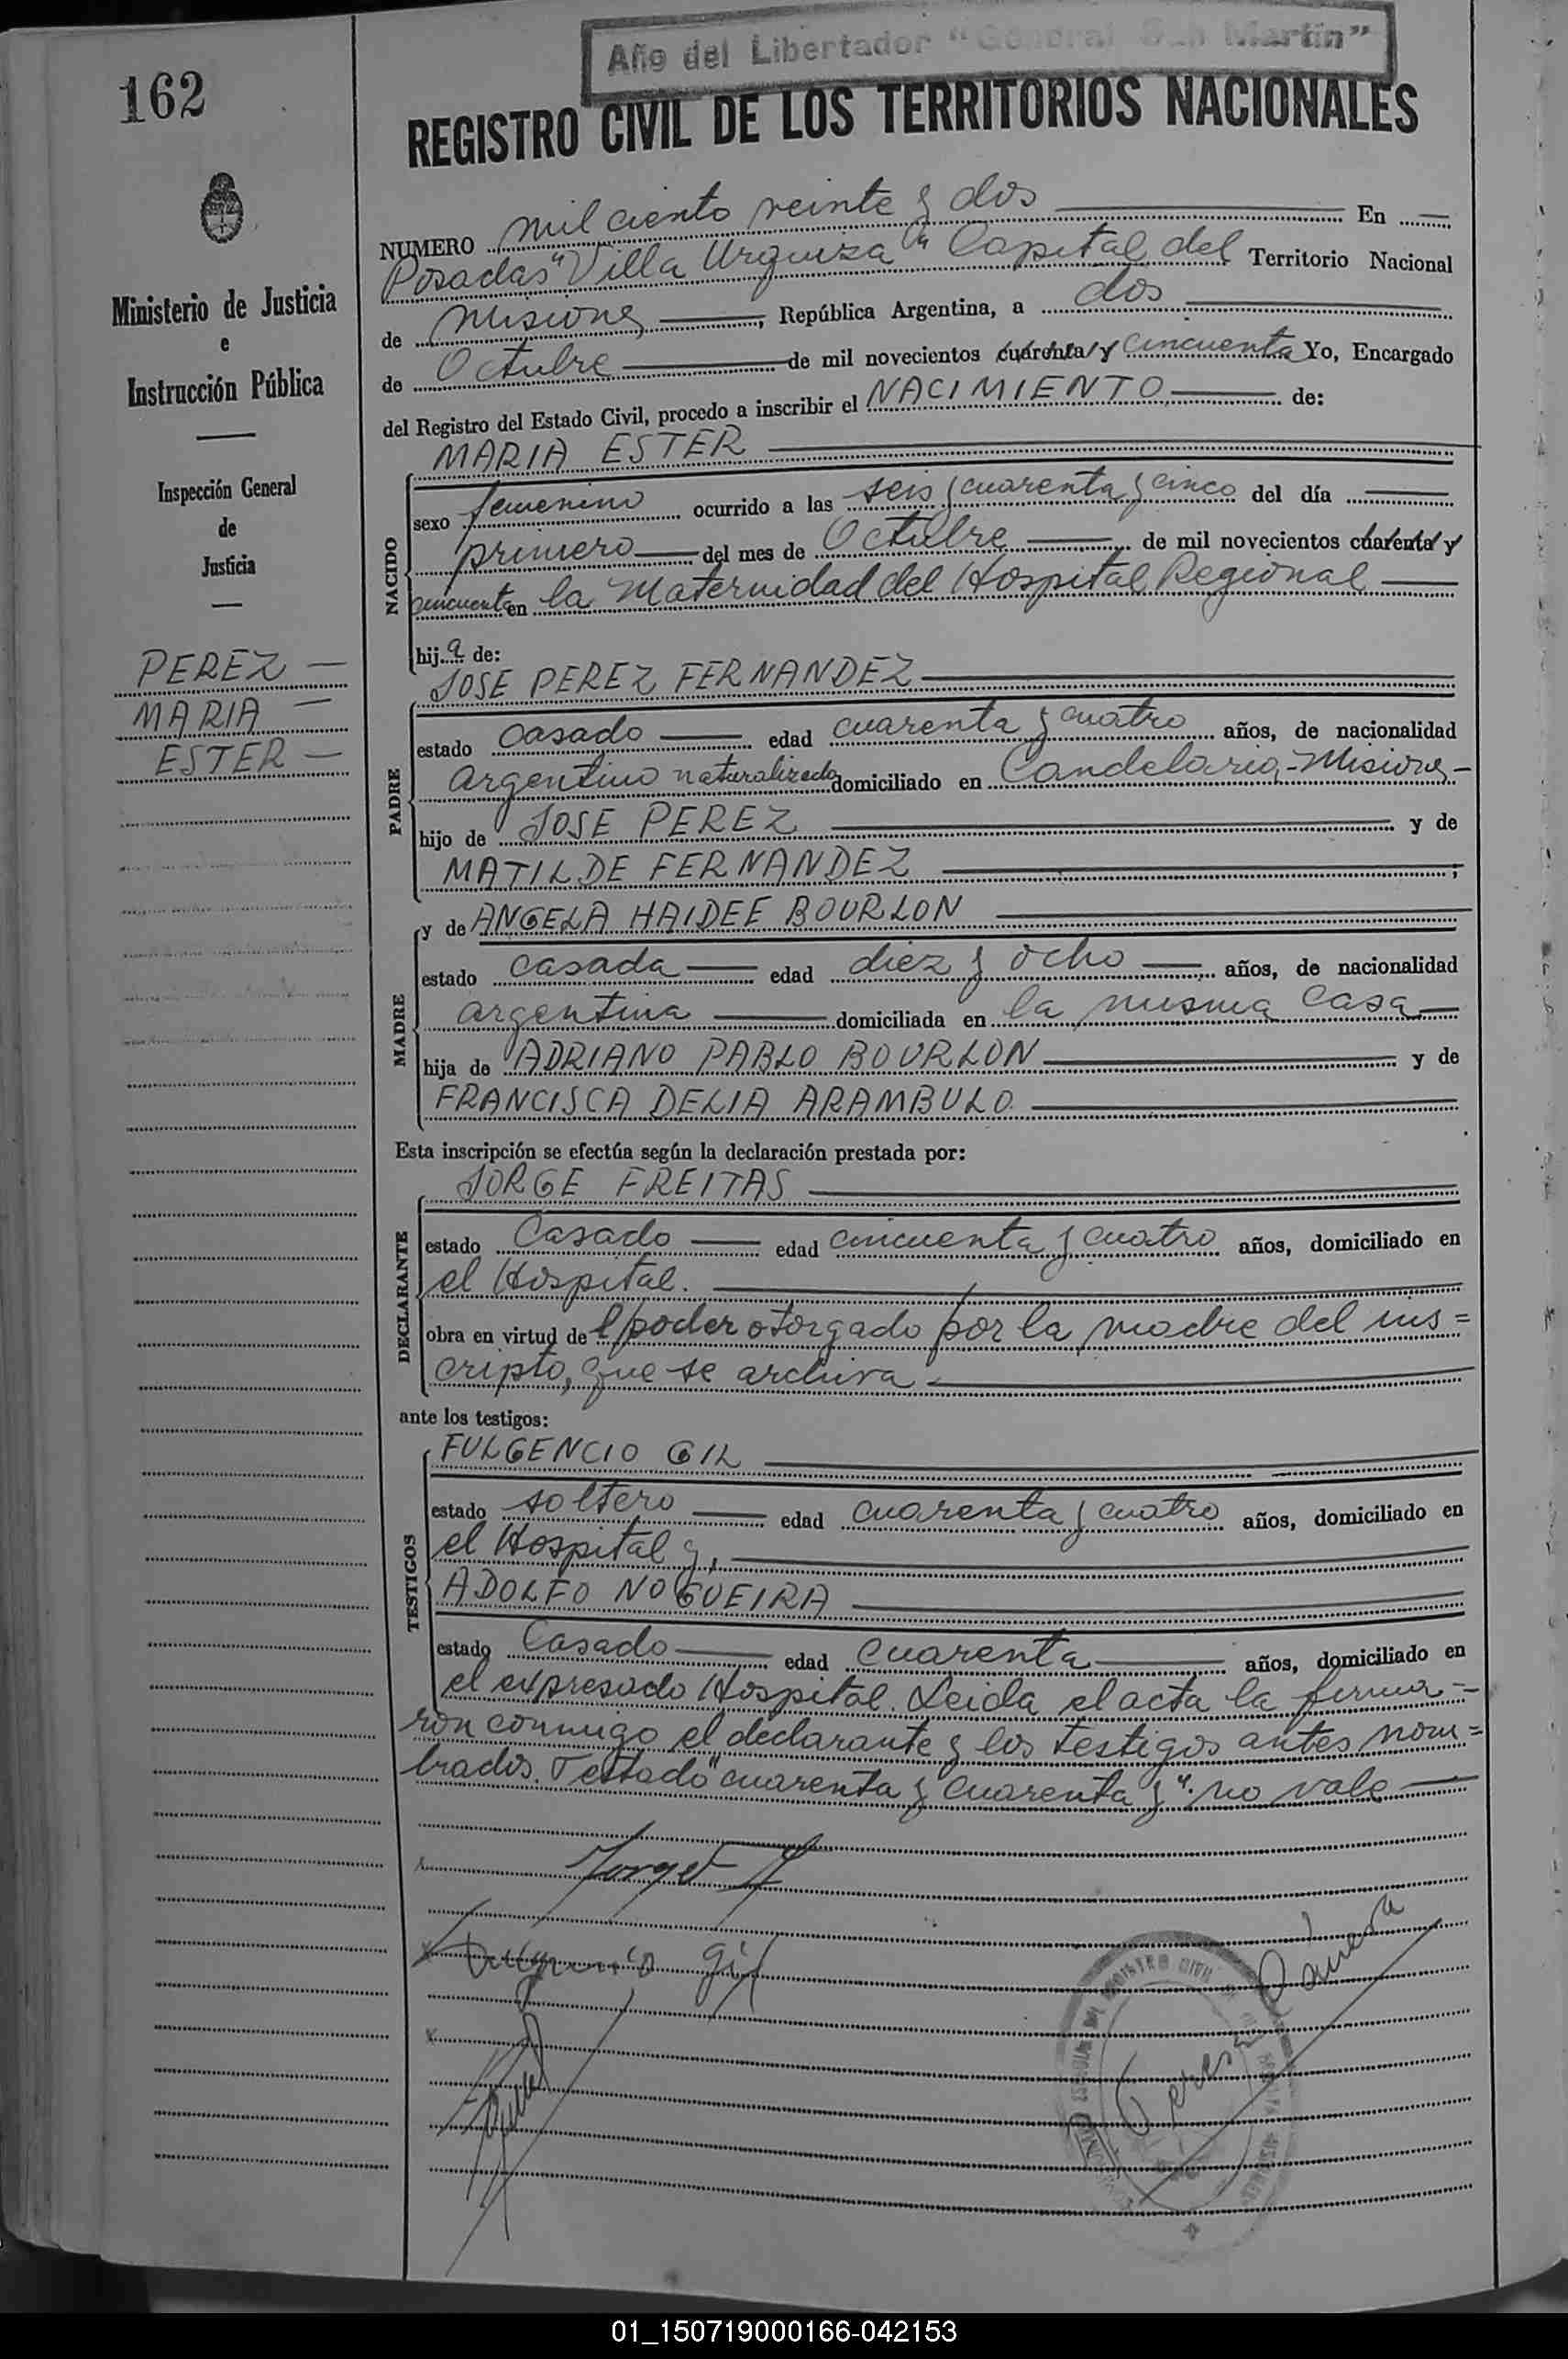 Año del Libertador "General San Martín"
162
REGISTRO CIVIL DE LOS TERRITORIOS NACIONALES
NUMERO mil ciento veinte y dos En
Posadas "Villa Urquiza" Capital del Territorio Nacional
de Misiones, República Argentina, a dos
de Octubre de mil novecientos cuarenta y cincuenta Yo, Encargado
del Registro del Estado Civil, procedo a inscribir el NACIMIENTO de:
MARIA ESTER
Ministerio de Justicia
e
Instrucción Pública
Inspección General
de
Justicia
PEREZ
MARIA
ESTER
NACIDO
sexo femenino ocurrido a las seis y cuarenta y cinco del día
primero del mes de Octubre de mil novecientos cuarenta y
cincuenta en la Maternidad del Hospital Regional
hija de:
JOSE PEREZ FERNANDEZ
PADRE
estado casado edad cuarenta y cuatro años, de nacionalidad
argentino naturalizado domiciliado en Candelaria-Misiones-
hijo de JOSE PEREZ y de
MATILDE FERNANDEZ;
MADRE
y de ANGELA HAIDEE BOURLON
estado casada edad diez y ocho años, de nacionalidad
argentina domiciliada en la misma casa
hija de ADRIANO PABLO BOURLON y de
FRANCISCA DELIA ARAMBULO.
Esta inscripción se efectúa según la declaración prestada por:
JORGE FREITAS
DECLARANTE
estado Casado edad cincuenta y cuatro años, domiciliado en
el Hospital.
obra en virtud del poder otorgado por la madre del ins=
cripto, que se archiva.-
ante los testigos:
FULGENCIO GIL
TESTIGOS
estado soltero edad cuarenta y cuatro años, domiciliado en
el Hospital y,
ADOLFO NOGUEIRA
estado Casado edad cuarenta años, domiciliado en
el expresado Hospital. Leida el acta la firma=
ron conmigo el declarante y los testigos antes nom=
brados. Testado "cuarenta y cuarenta y". no vale
Jorge F
Fulgencio Gil
Teresa
01_150719000166-042153